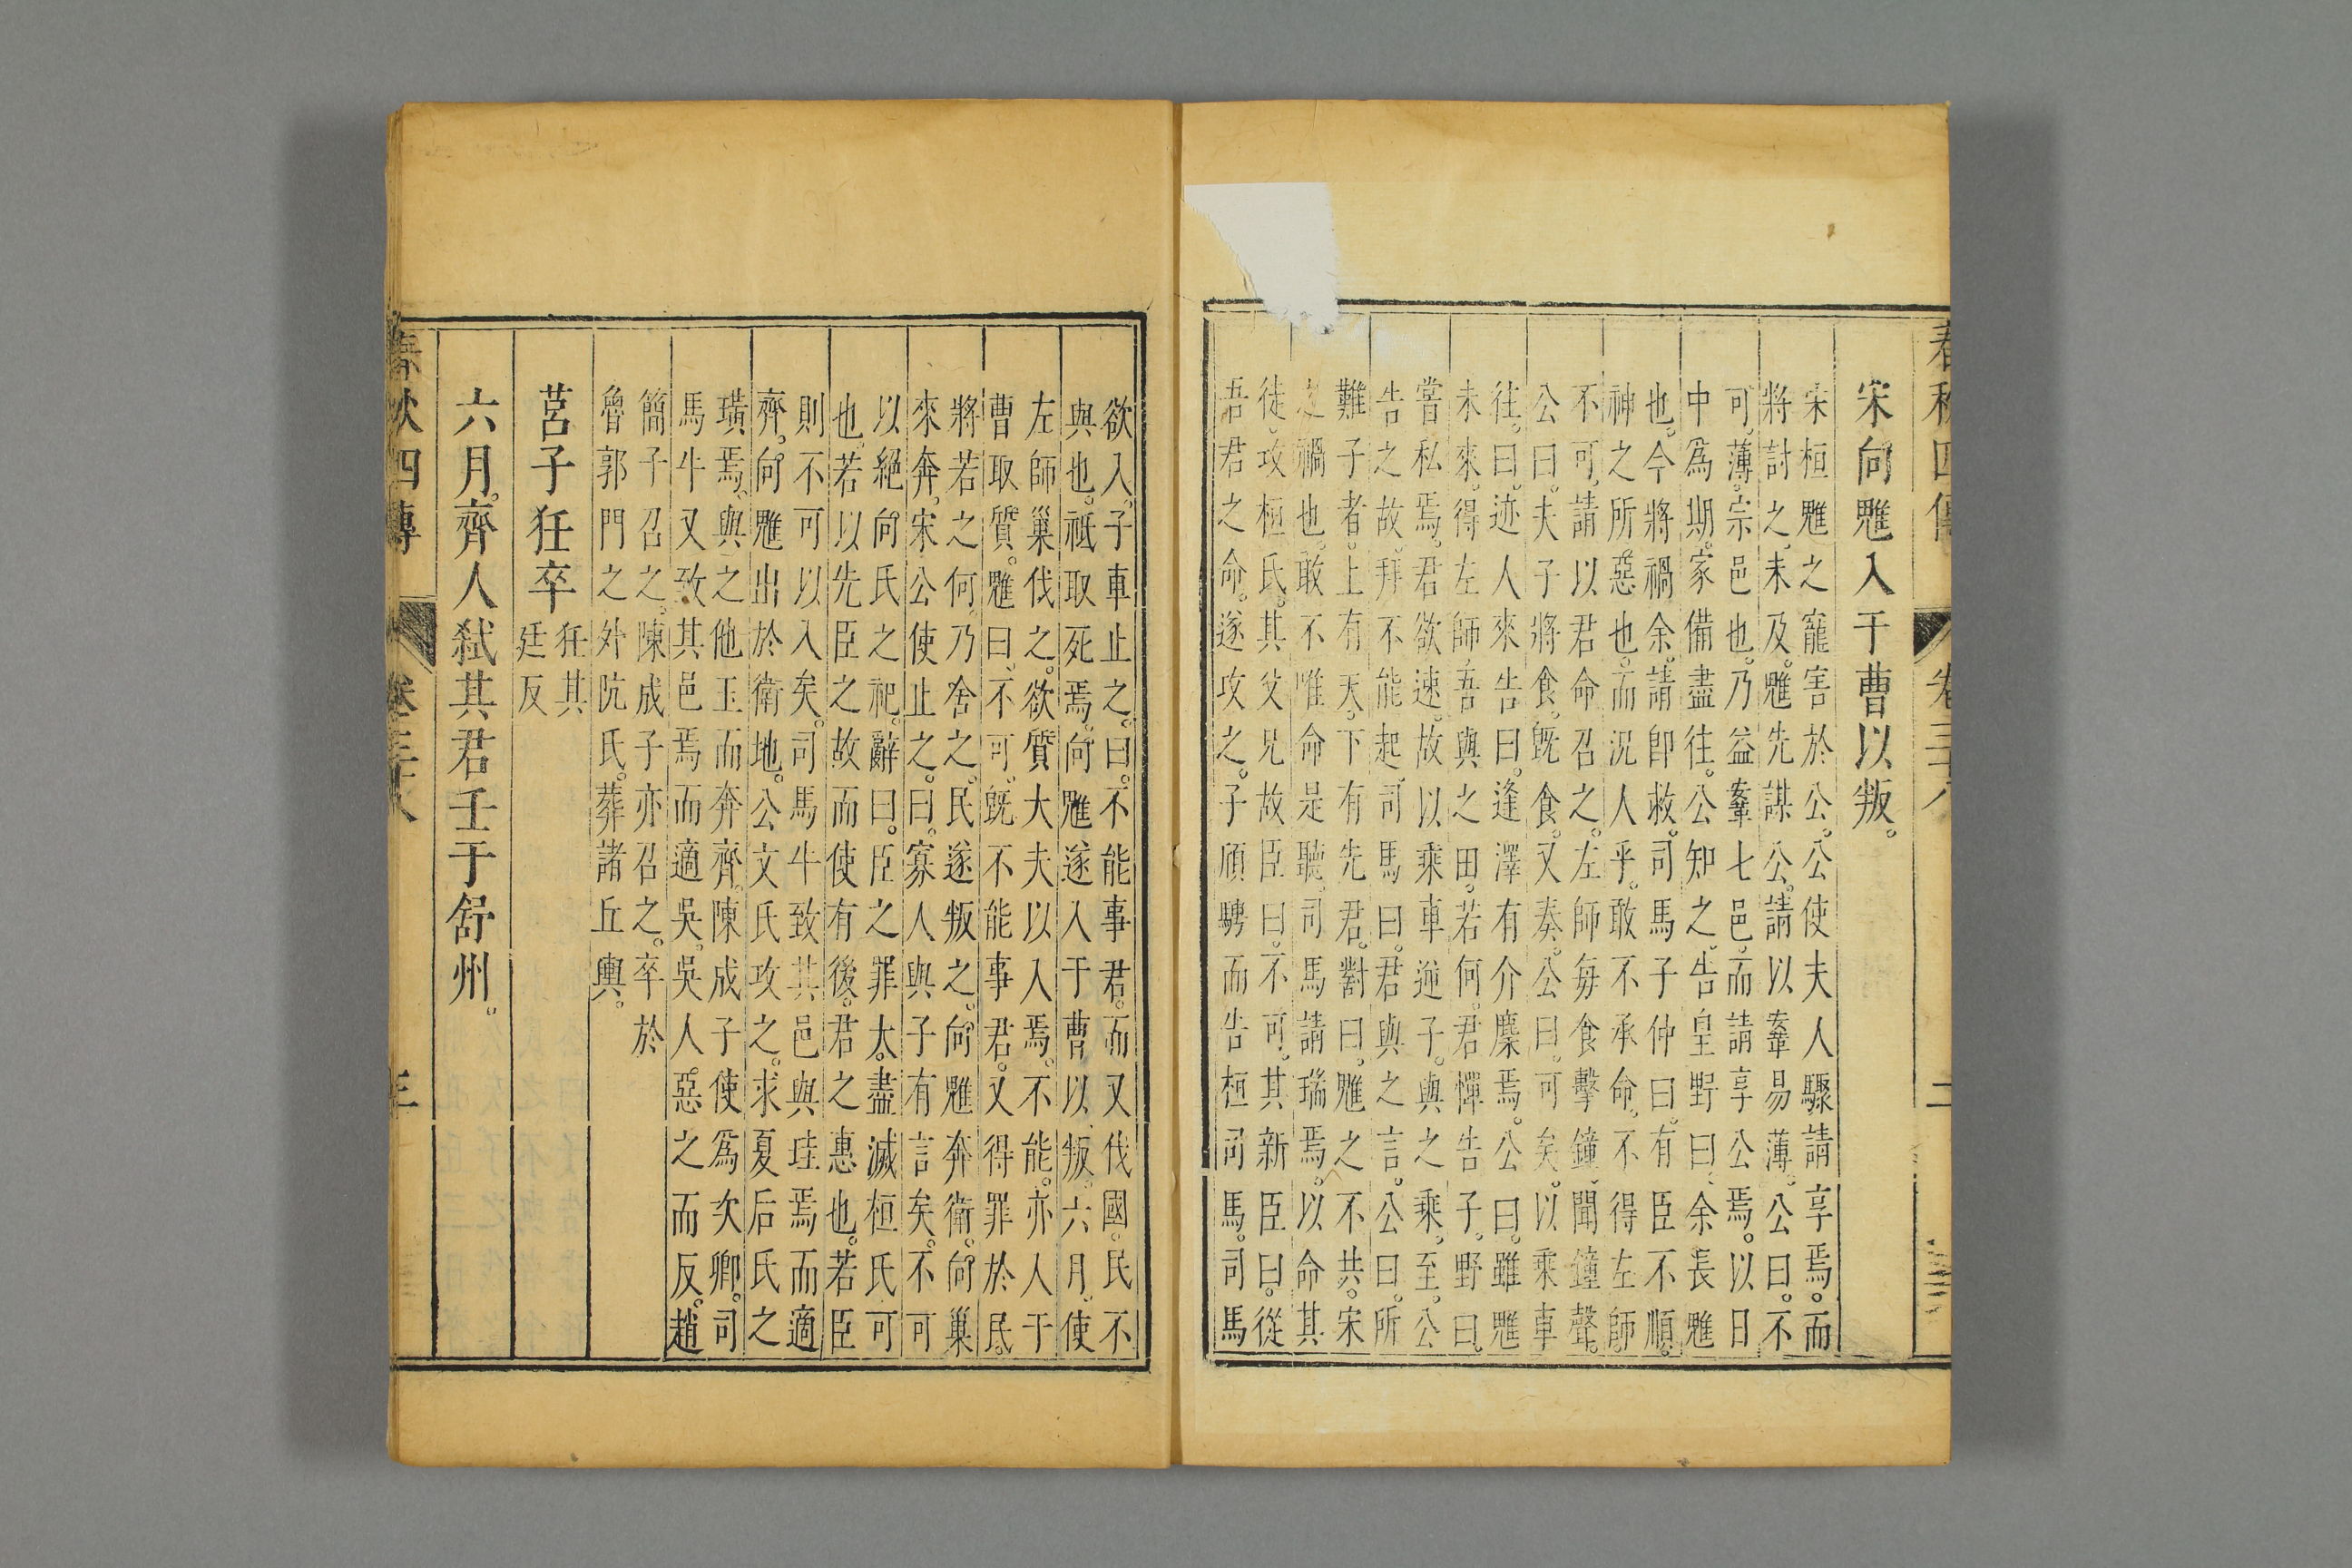 春秋四傳 卷三十八 二
宋向魋入于曹以叛。
宋桓魋之寵害於公。公使夫人驟請享焉。而
將討之。未及。魋先謀公。請以鞌易薄。公曰。不
可。薄。宗邑也。乃益鞌七邑。而請享公焉。以日
中爲期。家備盡往。公知之。告皇野曰。余長魋
也。今將禍余。請卽救。司馬子仲曰。有臣不順。
神之所惡也。而況人乎。敢不承命。不得左師
不可。請以君命召之。左師每食擊鐘。聞鐘聲。
公曰。夫子將食。旣食。又奏。公曰。可矣。以乘車
往。曰。迹人來告曰。逢澤有介麇焉。公曰。雖魋
未來。得左師。吾與之田。若何。君憚告子。野曰。
嘗私焉。君欲速。故以乘車逆子。與之乘。至。公
告之故。拜不能起。司馬曰。君與之言。公曰。所
難子者。上有天。下有先君。對曰。魋之不共。宋
之禍也。敢不唯命是聽。司馬請瑞焉。以命其
徒攻桓氏。其父兄故臣曰。不可。其新臣曰。從
吾君之命。遂攻之。子頎騁而告桓司馬。司馬
欲入。子車止之。曰。不能事君。而又伐國。民不
與也。祗取死焉。向魋遂入于曹以叛。六月。使
左師巢伐之。欲質大夫以入焉。不能。亦入于
曹取質。魋曰。不可。旣不能事君。又得罪於民。
將若之何。乃舍之。民遂叛之。向魋奔衛。向巢
來奔。宋公使止之。曰。寡人與子有言矣。不可
以絕向氏之祀。辭曰。臣之罪大。盡滅桓氏可
也。若以先臣之故而使有後。君之惠也。若臣
則不可以入矣。司馬牛致其邑與珪焉而適
齊。向魋出於衛地。公文氏攻之。求夏后氏之
璜焉。與之他玉而奔齊。陳成子使爲次卿。司
馬牛又致其邑焉而適吳。吳人惡之而反。趙
簡子召之。陳成子亦召之。卒於
魯郭門之外。阬氏葬諸丘輿。
莒子狂卒 狂其廷反
六月。齊人弑其君壬于舒州。
春秋四傳 卷三十八 三